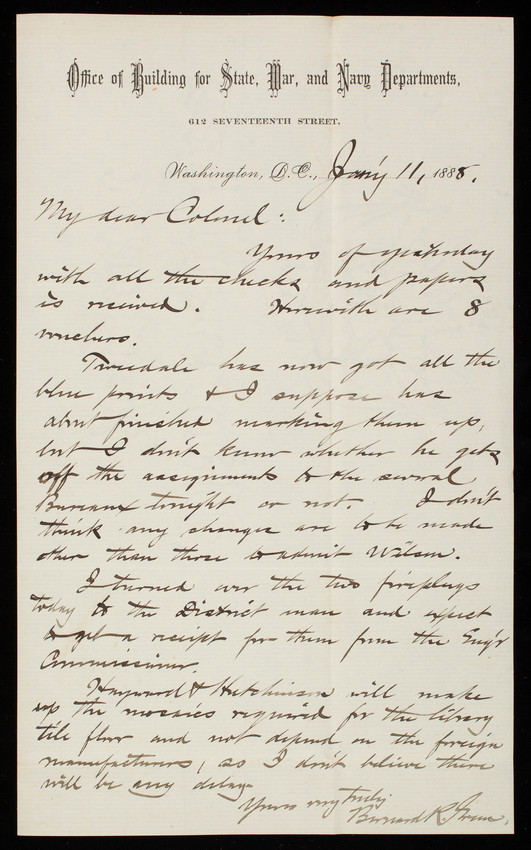 Office of Building for State, War, and Navy Departments,
612 SEVENTEENTH STREET,
Washington, D.C., Jan'y 11, 1888.
My dear Colonel:
Yours of yesterday
with all the checks and papers
is received. Herewith are 8
vouchers.
Tweedale has now got all the
blue prints & I suppose has
about finished marking them up,
but I don't know whether he gets
off the assignments to the several
Bureaux tonight or not. I don't
think any changes are to be made
other than those to admit Wilson.
I turned over the two fireplugs
today to the District man and expect
to get a receipt for them from the Eng'r
Commissioner.
Hayward & Hutchinson will make
up the mosaics required for the library
tile floor and not depend on the foreign
manufacturers, so I don't believe there
will be any delay.
Yours very truly
Bernard R. Green.